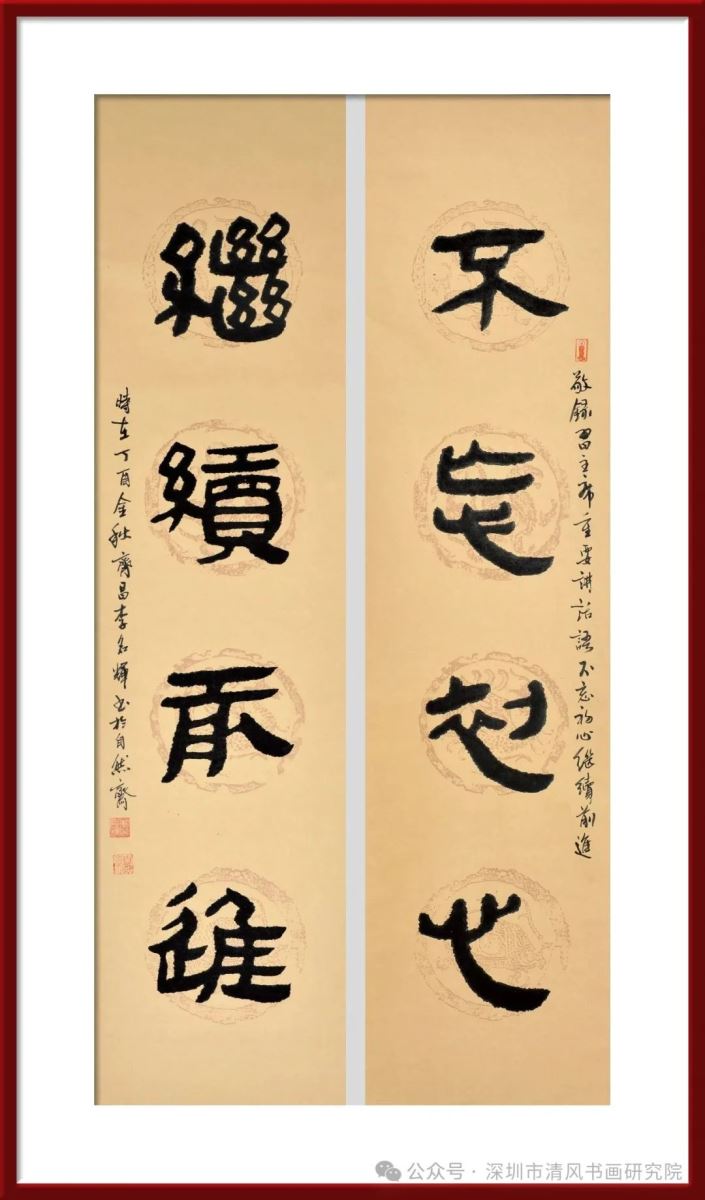 不忘初心
敬錄習主席重要講話語不忘初心繼續前進
繼續前進
時在丁酉金秋齊昌李名輝書於自然齋
公众号·深圳市清风书画研究院